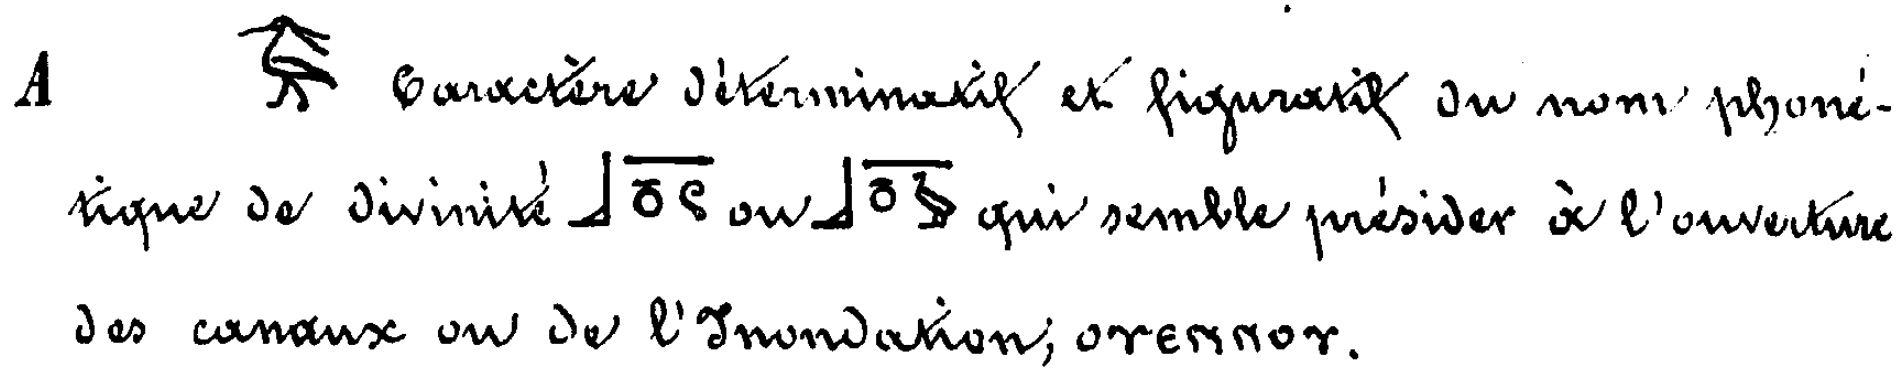 A Caractère déterminatif et figuratif du nom phoné-
tique de divinité ou qui semble présider à l'ouverture
des canaux ou de l'Inondation,